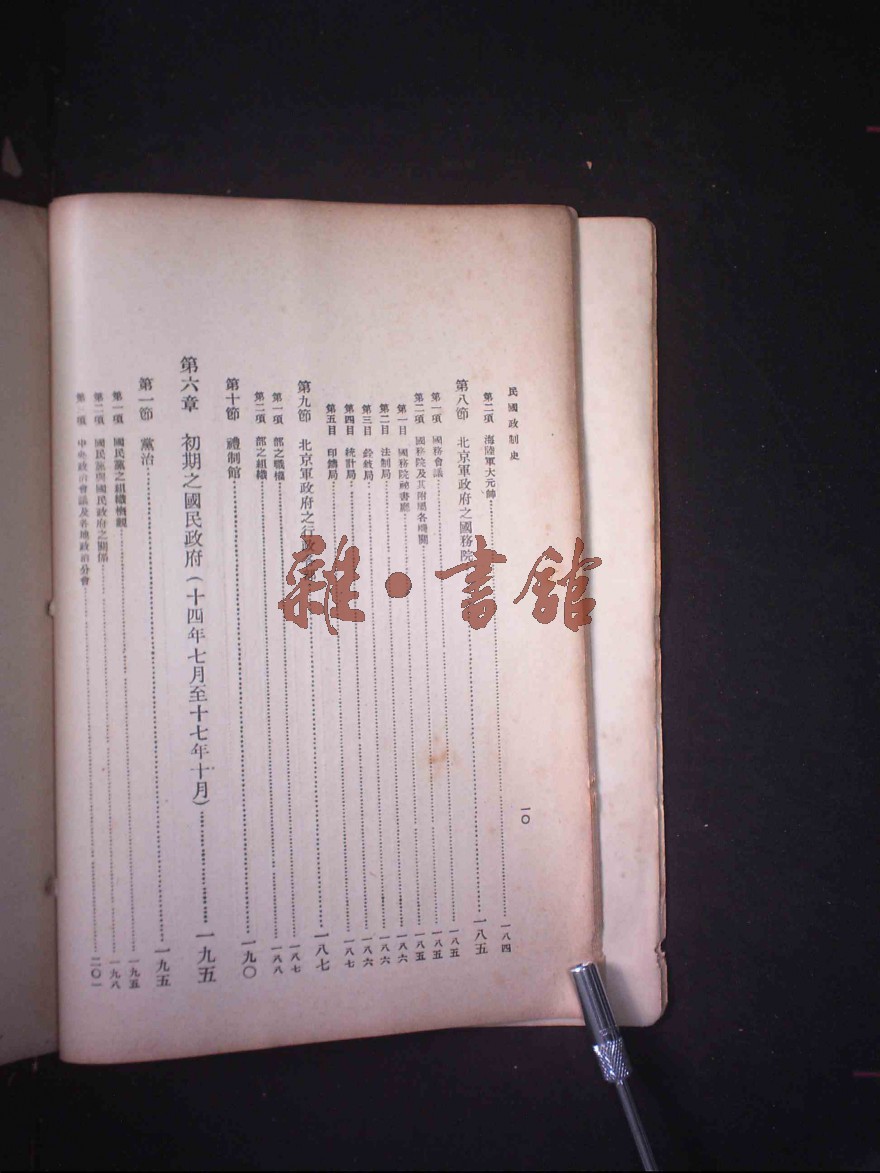 民國政制史
一〇
第二項 海陸軍大元帥……一八四
第八節 北京軍政府之國務院……一八五
第一項 國務會議……一八五
第二項 國務院及其附屬各機關……一八五
第一目 國務院祕書廳……一八六
第二目 法制局……一八六
第三目 銓敍局……一八六
第四目 統計局……一八七
第五目 印鑄局……一八七
第九節 北京軍政府之行政……一八七
第一項 部之職權……一八七
第二項 部之組織……一八八
第十節 禮制館……一九〇
第六章 初期之國民政府(十四年七月至十七年十月)……一九五
第一節 黨治……一九五
第一項 國民黨之組織概觀……一九五
第二項 國民黨與國民政府之關係……一九八
項 中央政治會議及各地政治分會……二〇一
雜·書館